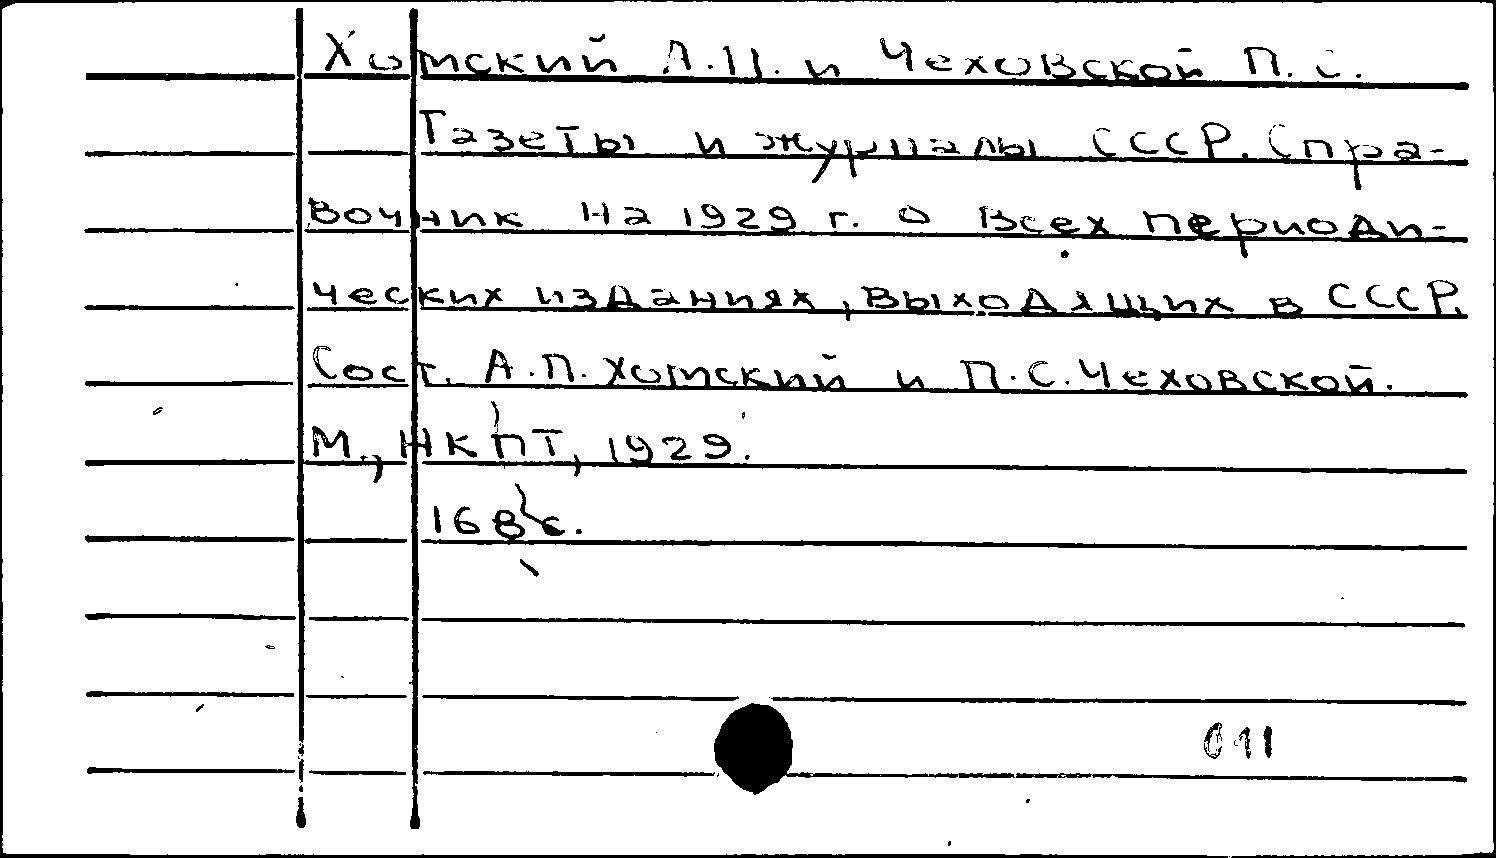 Хотмский А.П. и Чеховской П.С.
Газеты и журналы СССР. Спра-
вочник на 1929 г. о всех периоди-
ческих изданиях, выходящих в СССР.
Сост. А.П. Хотмский и П.С. Чеховской.
М., НКПТ, 1929.
168 с.
011